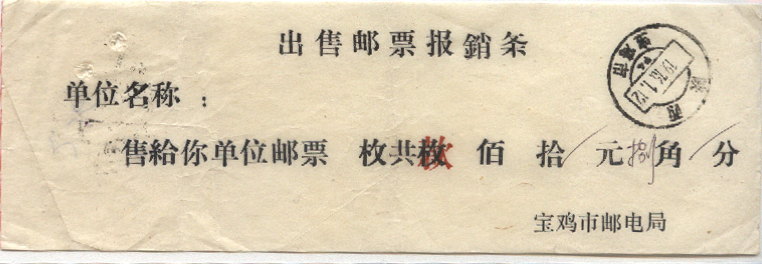 出售邮票报銷条
单位名称：
售給你单位邮票 枚共枚款 佰 拾 元捌角 分
宝鸡市邮电局
陕西
1976.1.12